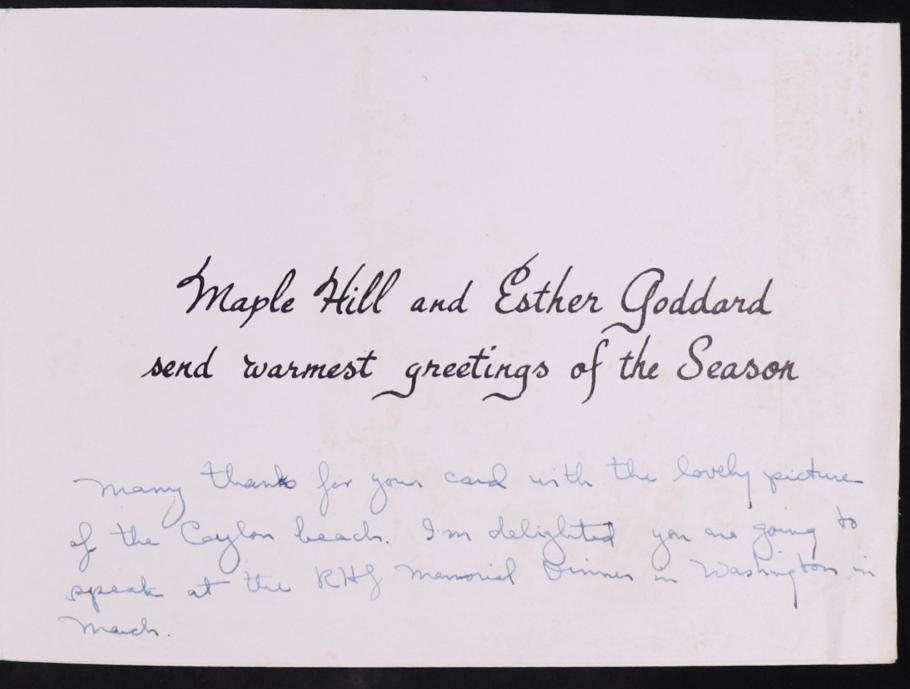 Maple Hill and Esther Goddard
send warmest greetings of the Season
Many thanks for your card with the lovely picture
of the Ceylon beach. I'm delighted you are going to
speak at the RHG Memorial Dinner in Washington in
March.